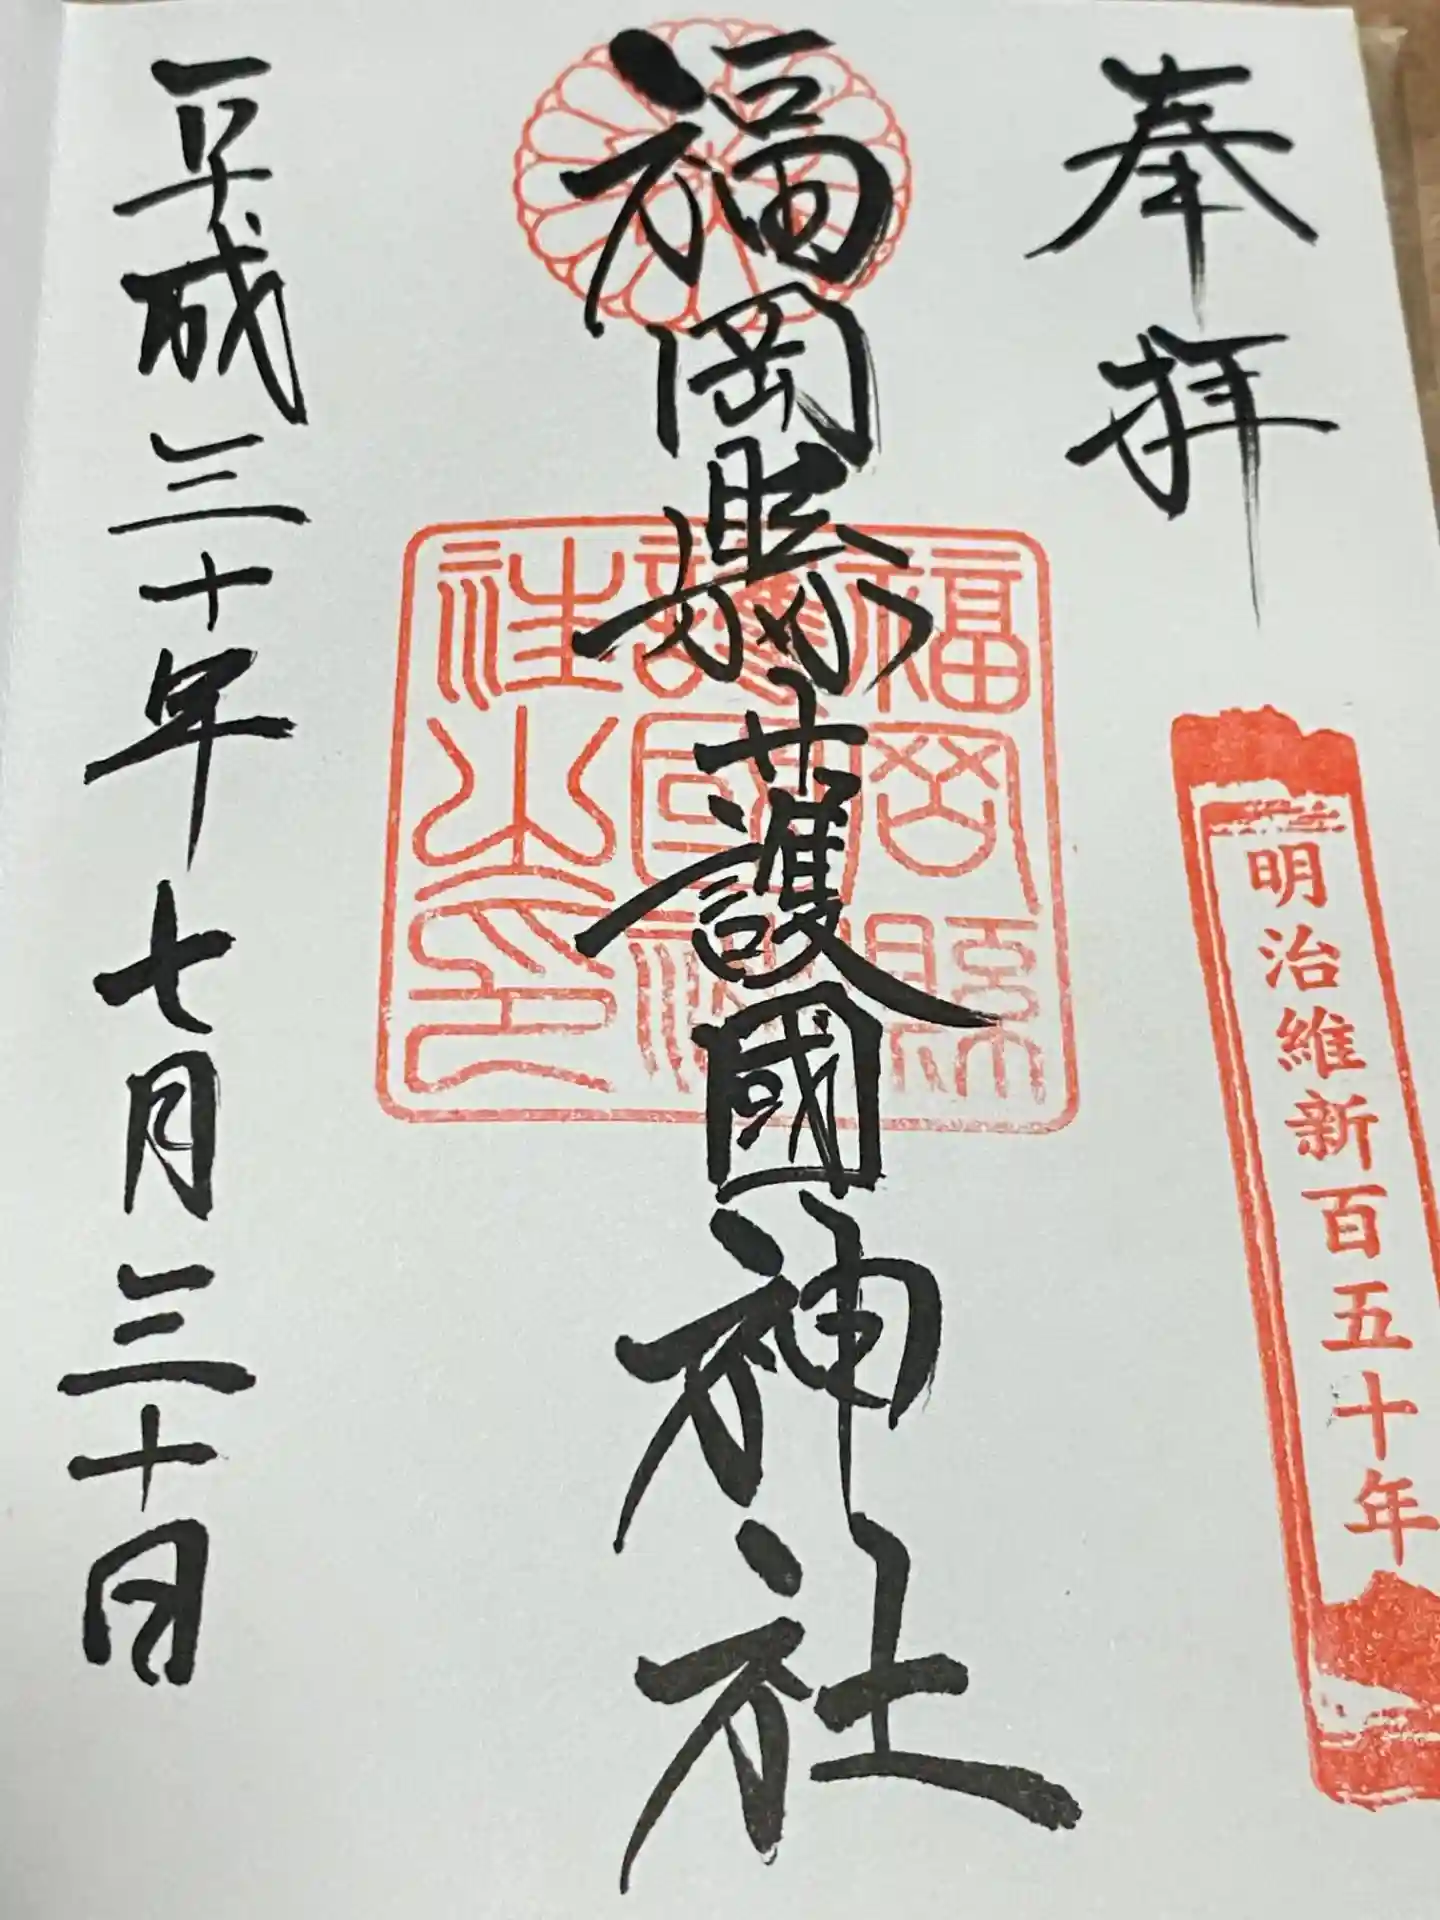 奉拝
明治維新百五十年
福岡縣護國神社
福岡縣
護國神
社之印
平成三十年七月三十日